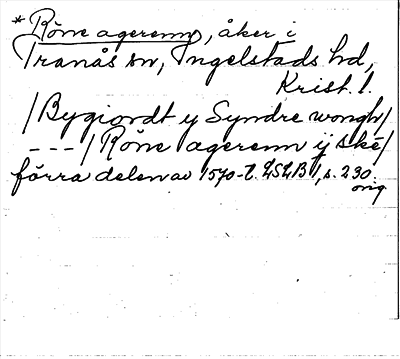 *Röne agerenn, åker i
Tranås sn, Ingelstads hd,
Krist. l.
/Bygiordt y Syndre wongh/
---/Röne agerenn ij ske/
förra delen av 1570-t. LSLB 1, s. 230.
orig